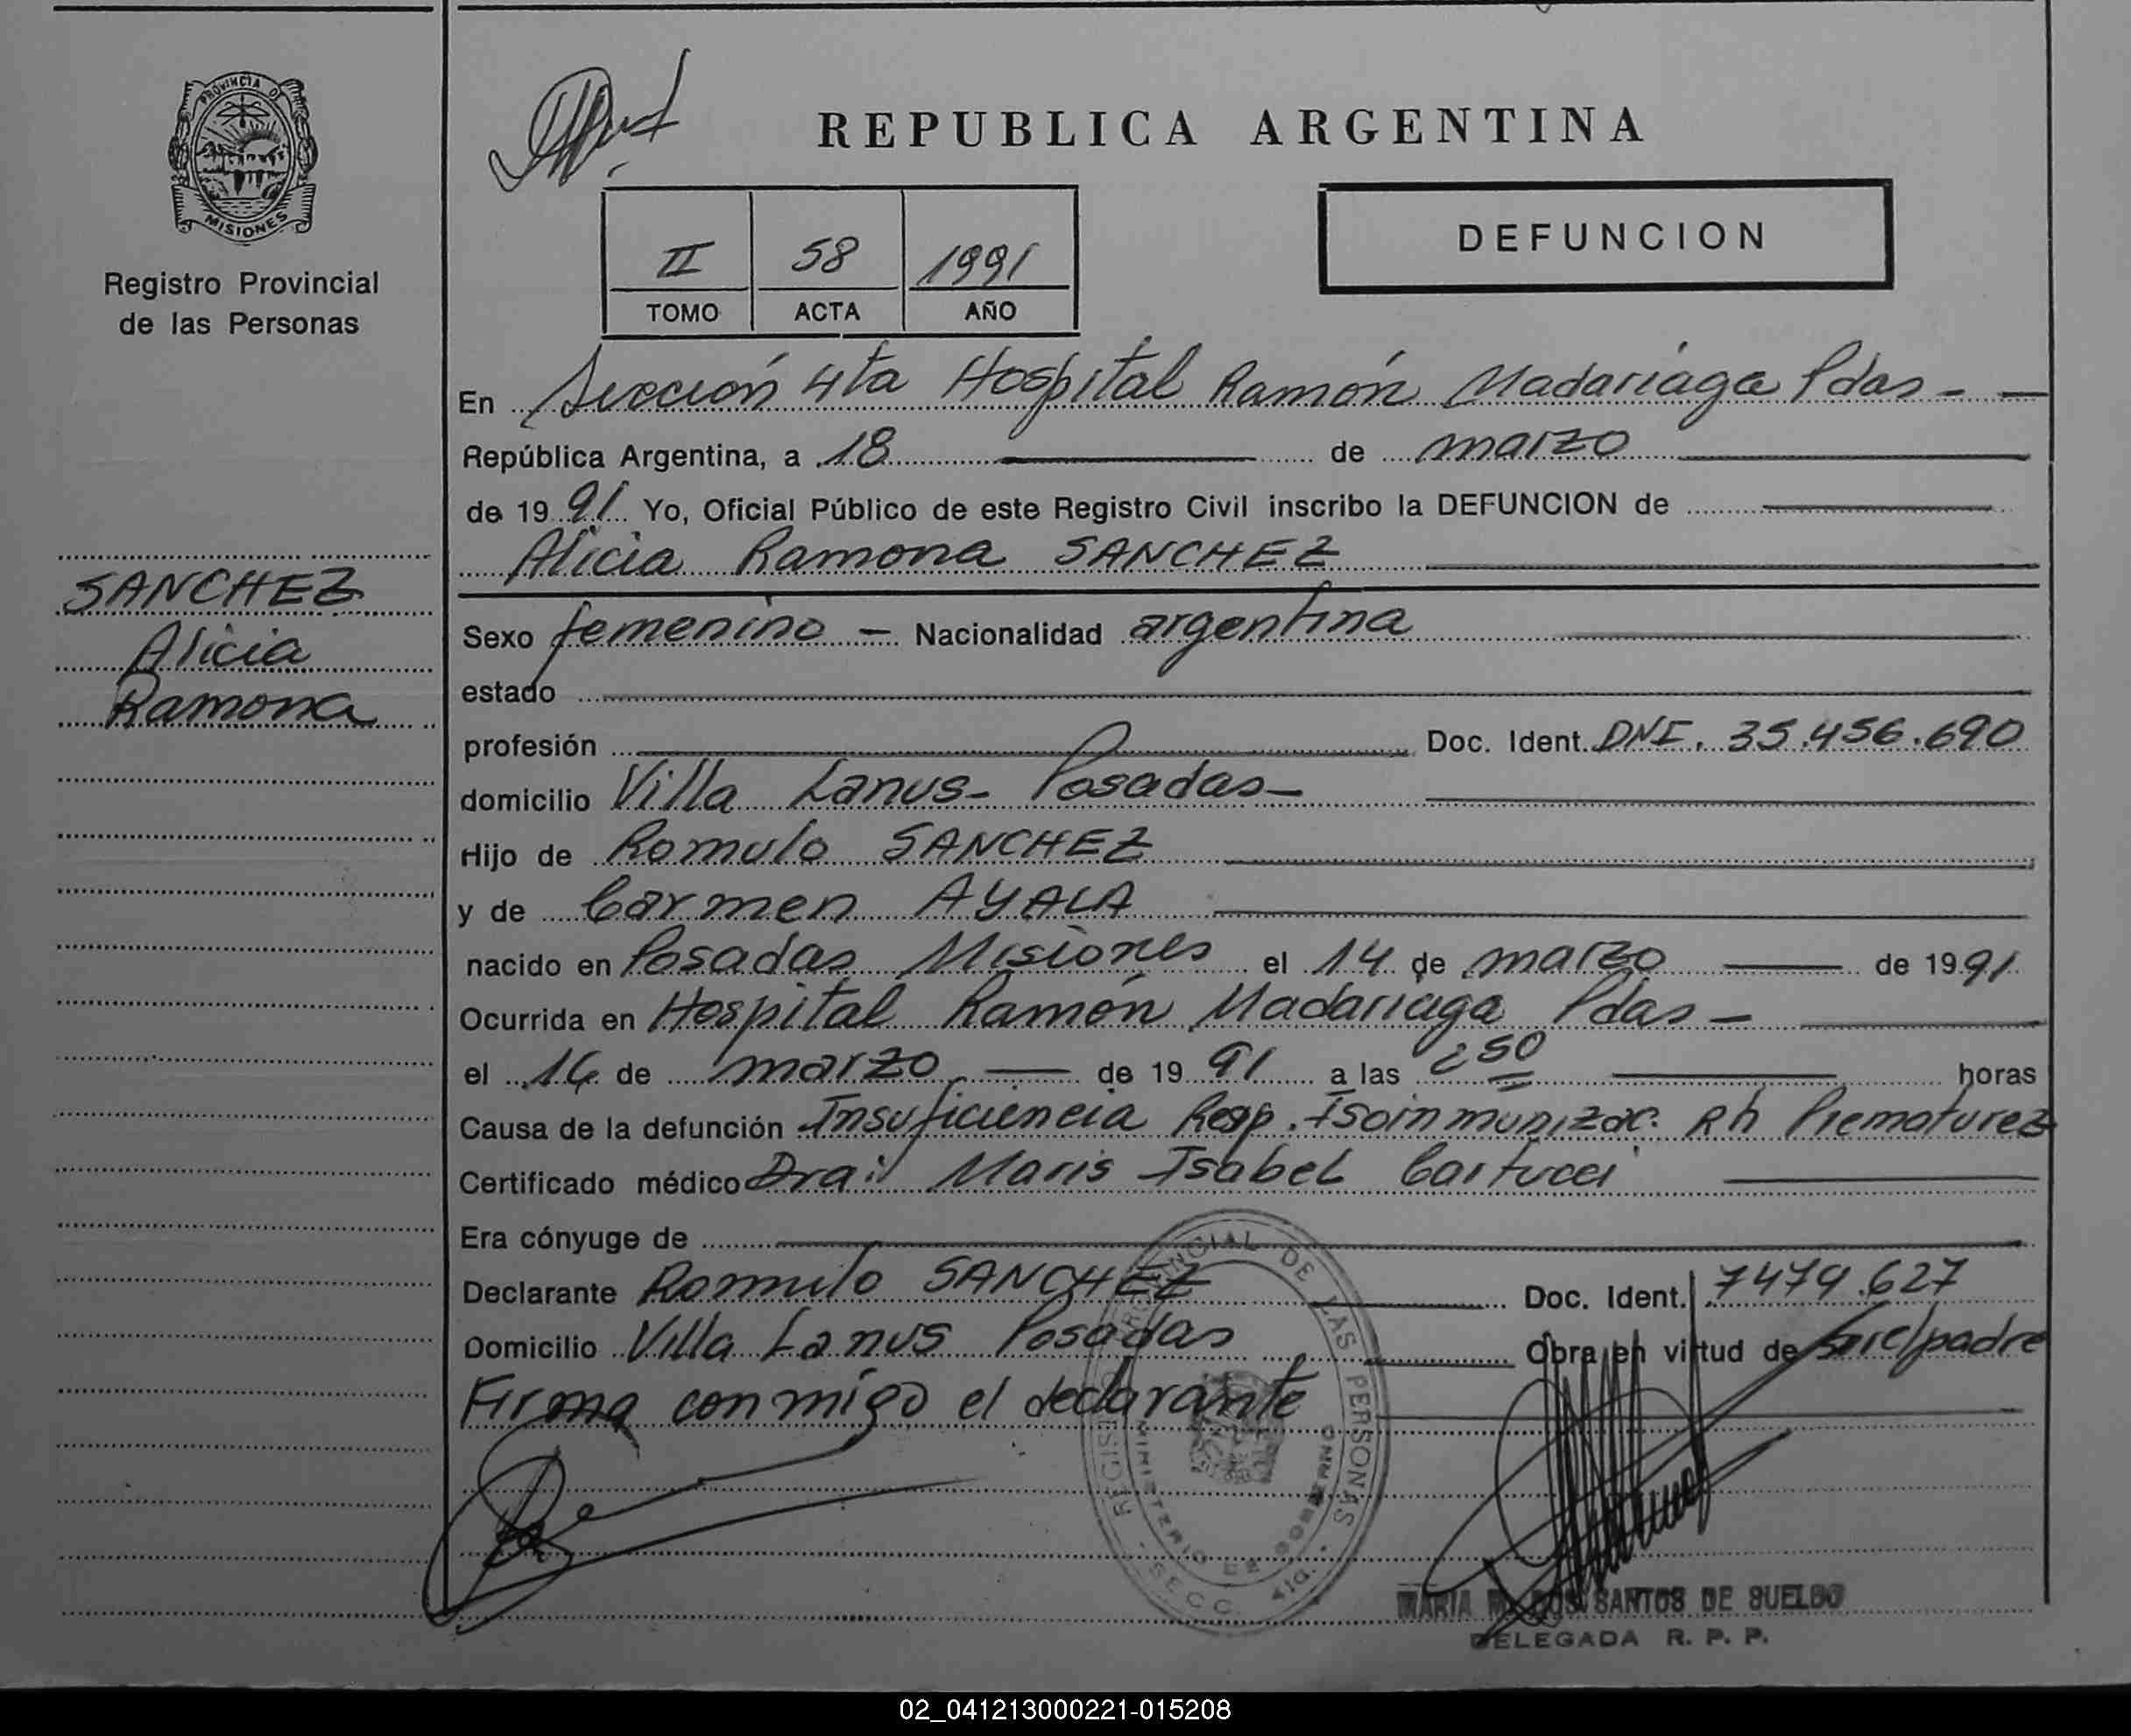 PROVINCIA DE
MISIONES
Registro Provincial
de las Personas
SANCHEZ
Alicia
Ramona
REPUBLICA ARGENTINA
DEFUNCION
II 58 1991
TOMO ACTA AÑO
En Sección 4ta Hospital Ramón Madariaga Pdas -
República Argentina, a 18 de marzo
de 19 91 Yo, Oficial Público de este Registro Civil inscribo la DEFUNCION de
Alicia Ramona SANCHEZ
Sexo femenino - Nacionalidad argentina
estado
profesión Doc. Ident. DNI. 35.456.690
domicilio Villa Lanus - Posadas -
Hijo de Romulo SANCHEZ
y de Carmen AYALA
nacido en Posadas Misiones el 14 de marzo de 1991
Ocurrida en Hospital Ramón Madariaga Pdas -
el 16 de marzo de 19 91 a las 2 50 horas
Causa de la defunción Insuficiencia Resp. Isoinmunizac. Rh Prematurez
Certificado médico Dra: Maris Isabel Cartucci
Era cónyuge de
Declarante Romulo SANCHEZ Doc. Ident. 7479.627
Domicilio Villa Lanus Posadas Obra en virtud de ser el padre
Firma conmigo el declarante
REGISTRO PROVINCIAL DE LAS PERSONAS
MINISTERIO DE GOBIERNO
SECC. 4TA.
MARIA DOS SANTOS DE SUELDO
DELEGADA R. P. P.
02_041213000221-015208